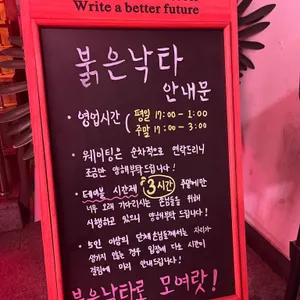 Write a better future
붉은낙타
안내문
· 영업시간 ( 평일 17:00 - 1:00
주말 17:00 - 3:00
· 웨이팅은 순차적으로 연락드리니
조금만 양해부탁드립니다!
· 테이블 시간제 "3시간" 주말에만
너무 오래 기다리시는 손님들을 위해
시행하고 있으니 양해부탁드립니다!
· 5인 이상의 단체손님들께서는 자리가
생기지 않는 경우 입장에 다소 시간이
걸림에 미리 안내드립니다!
붉은낙타로 모여랏!